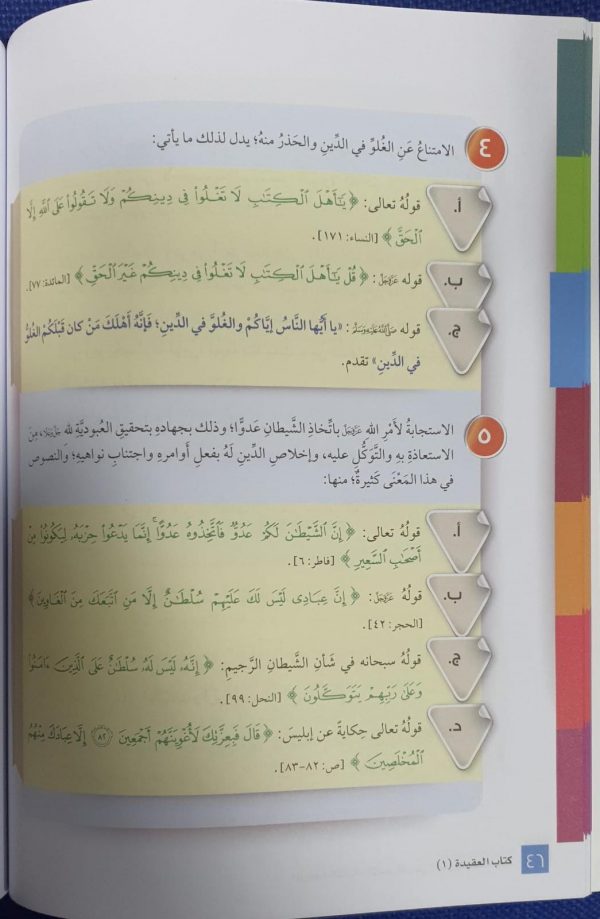 ٤ الامتناعُ عَنِ الغُلوِّ في الدِّينِ والحَذرُ منهُ؛ يدل لذلك ما يأتي:
أ. قولُهُ تعالى: ﴿ يَٰٓأَهْلَ ٱلْكِتَٰبِ لَا تَغْلُوا۟ فِى دِينِكُمْ وَلَا تَقُولُوا۟ عَلَى ٱللَّهِ إِلَّا
ٱلْحَقَّ ﴾ [النساء: ١٧١].
ب. قوله عَزَّوَجَلَّ: ﴿ قُلْ يَٰٓأَهْلَ ٱلْكِتَٰبِ لَا تَغْلُوا۟ فِى دِينِكُمْ غَيْرَ ٱلْحَقِّ ﴾ [المائدة: ٧٧].
ج. قوله صَلَّى اللَّهُ عَلَيْهِ وَسَلَّمَ: «يا أَيُّها النَّاسُ إِيَّاكُمْ والغُلوَّ في الدِّينِ؛ فَإِنَّهُ أَهْلَكَ مَنْ كان قَبْلَكُمْ الغُلُوُّ
في الدِّينِ» تقدم.
٥ الاستجابةُ لأَمْرِ الله عَزَّوَجَلَّ باتِّخاذِ الشَّيطانِ عدوًّا؛ وذلك بجهادِهِ بتحقيقِ العبوديَّةِ لله، مِنَ
الاستعاذةِ بهِ والتَّوَكُّلِ عليه، وإخلاصِ الدِّينِ لَهُ بفعلِ أوامرِهِ واجتنابِ نواهيهِ؛ والنصوص
في هذا المَعْنَى كَثيرةٌ؛ منها:
أ. قولُهُ تعالى: ﴿ إِنَّ ٱلشَّيْطَٰنَ لَكُمْ عَدُوٌّ فَٱتَّخِذُوهُ عَدُوًّا ۚ إِنَّمَا يَدْعُوا۟ حِزْبَهُۥ لِيَكُونُوا۟ مِنْ
أَصْحَٰبِ ٱلسَّعِيرِ ﴾ [فاطر: ٦].
ب. قولُهُ عَزَّوَجَلَّ: ﴿ إِنَّ عِبَادِى لَيْسَ لَكَ عَلَيْهِمْ سُلْطَٰنٌ إِلَّا مَنِ ٱتَّبَعَكَ مِنَ ٱلْغَاوِينَ ﴾
[الحجر: ٤٢].
ج. قولُهُ سبحانه في شَأنِ الشَّيطانِ الرَّجيمِ: ﴿ إِنَّهُۥ لَيْسَ لَهُۥ سُلْطَٰنٌ عَلَى ٱلَّذِينَ ءَامَنُوا۟
وَعَلَىٰ رَبِّهِمْ يَتَوَكَّلُونَ ﴾ [النحل: ٩٩].
د. قولُهُ تعالى حِكايةً عن إبليسَ: ﴿ قَالَ فَبِعِزَّتِكَ لَأُغْوِيَنَّهُمْ أَجْمَعِينَ ٨٢ إِلَّا عِبَادَكَ مِنْهُمُ
ٱلْمُخْلَصِينَ ﴾ [ص: ٨٢-٨٣].
٤٦ كتاب العقيدة (١)